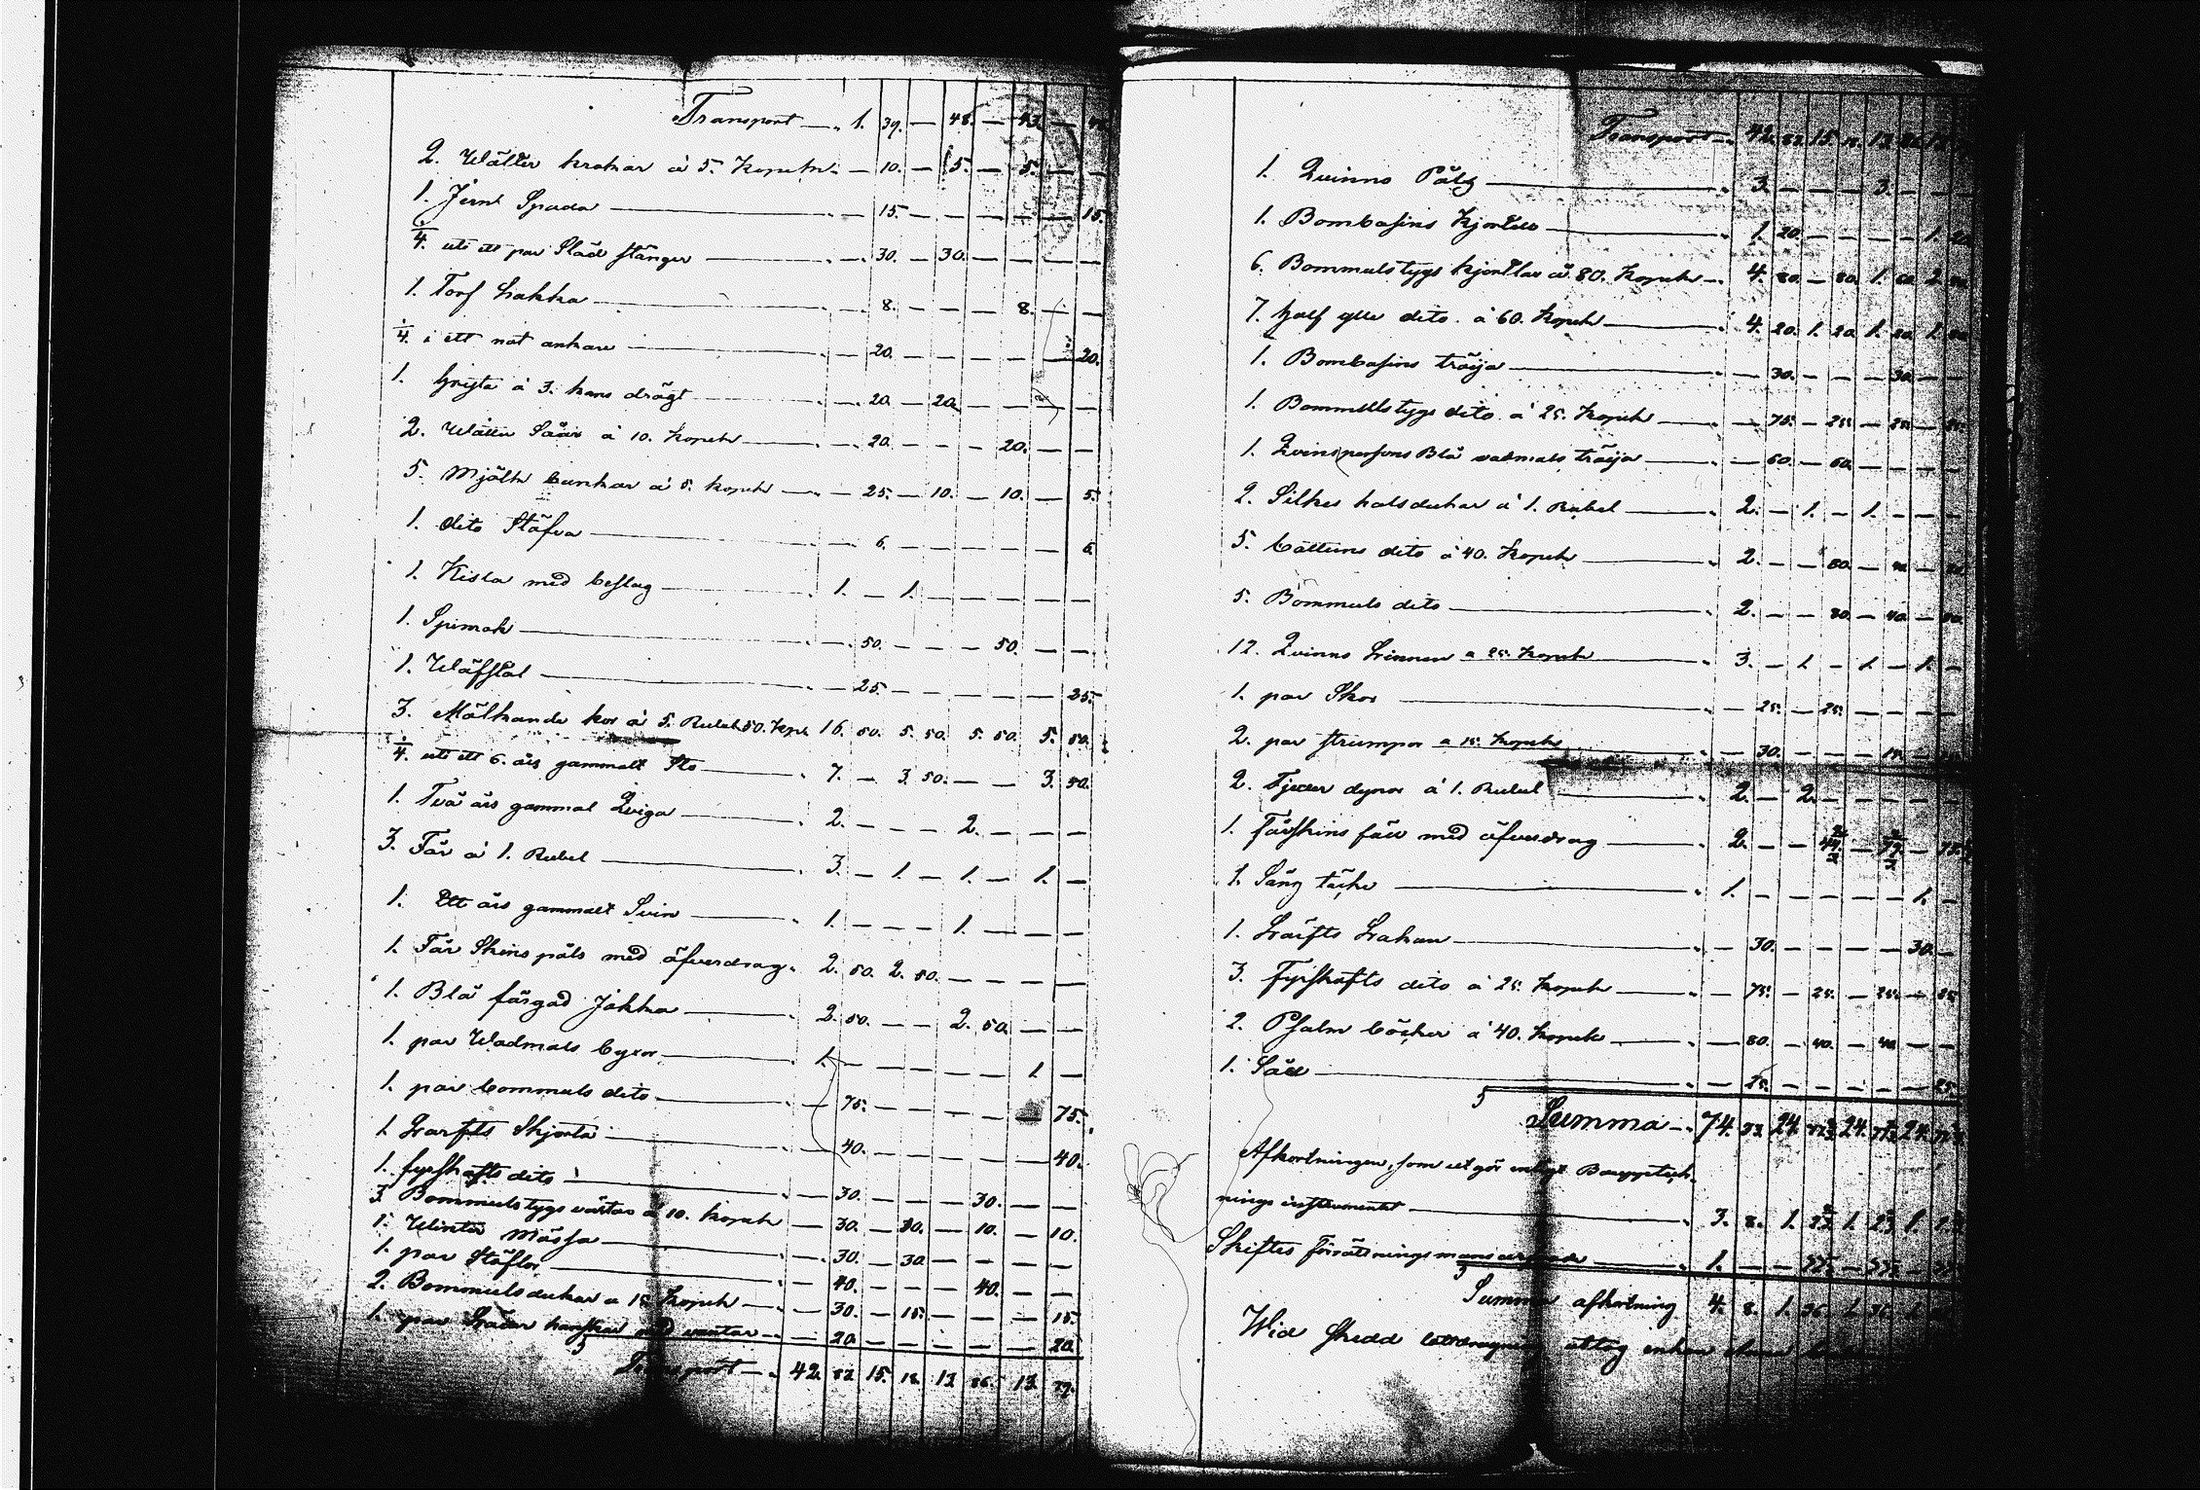 Transport — 1. 39. — 48. — 43. —
2. Wätter krokar à 5. Kopek — 10. — 5. — 5. — —
1. Jern Spada — 15. — — — — — 15.
1/4. uti ett par Släd stänger — 30. — 30. — — — —
1. Torf hakka — 8. — — — 8. — —
1/4. i ett not ankare — 20. — — — — — 20.
1. Gryta à 3. kans drägt — 20. — 20. — — — —
2. Wätter Såår à 10. Kopek — 20. — — — 20. — —
5. Mjölk bunkar à 5. kopek — 25. — 10. — 10. — 5.
1. dito Stäfva — 6. — — — — — 6.
1. Kista med beslag — 1. — 1. — — — — —
1. Spinrok — 50. — — — 50. — —
1. Wäfstol — 25. — — — — — 25.
3. Mölkande kor à 5. Rubel 50. Kopek 16. 50. 5. 50. 5. 50. 5. 50.
1/4. uti ett 6. års gammalt Sto — 7. — 3. 50. — — 3. 50.
1. Två års gammal Qviga — 2. — — — 2. — — —
3. Får à 1. Rubel — 3. — 1. — 1. — 1. —
1. Ett års gammalt Svin — 1. — — — 1. — — —
1. Får Skins päls med öfverdrag. 2. 50. 2. 50. — — — —
1. Blå färgad Jakka — 2. 50. — — 2. 50. — —
1. par Wadmals byxor — 1. — — — — — 1. —
1. par bommuls dito — 75. — — — — — 75.
1. Larfts Skjorta — 40. — — — — — 40.
1. fyrskafts dito — 30. — — — 30. — —
3. Bommulstygs västar à 10. kopek — 30. — 10. — 10. — 10.
1. Winter Mössa — 30. — 30. — — — —
1. par Stöflor — 40. — — — 40. — —
2. Bommuls dukar à 15. Kopek — 30. — 15. — — — 15.
1. par Läder hanskar med vantar — 20. — — — — — 20.
Transport — 42. 82. 15. 18. 13. 86. 13.
Transport — 42. 82. 15. 18. 13.
1. Qvinns Pälz — 3. — — — 3. — — —
1. Bombasins Kjortel — 1. 20. — — — — 1. 20.
6. Bommulstygs kjortlar à 80. Kopek — 4. 80. — 80. 1. 60. 2.
7. half ylle dito à 60. Kopek — 4. 20. 1. 20. 1. 20. 1.
1. Bombasins tröija — 30. — — — 30. — —
1. Bommulstygs dito à 25. Kopek — 75. — 25. — 25. — 25.
1. Qvinspersons Blå vadmals tröija — 60. — 60. — — — —
2. Silkes halsdukar à 1. Rubel — 2. — 1. — 1. — — —
5. Cattuns dito à 40. Kopek — 2. — — 80. — 40. — 80.
5. Bommuls dito — 2. — — 80. — 40. — 80.
12. Qvinns Linnen à 25. Kopek — 3. — 1. — 1. — 1. —
1. par Skor — 25. — 25. — — — —
2. par strumpor à 15. Kopek — 30. — — — 15. —
2. Fjeder dynor à 1. Rubel — 2. — 2. — — — — —
1. Fårskins fäll med öfverdrag — 2. — —
1. Säng täcke — 1. — — — — — 1. —
1. Larfts Lakan — 30. — — — — 30. —
3. Fyrskafts dito à 25. Kopek — 75. — 25. — 25. — 25.
2. Psalm böcker à 40. Kopek — 80. — 40. — 40. — —
1. Såll — 25. — — — — — 25.
Summa — 74. 24. 24. 24.
Afkortningen, som utgör enligt Bouppteck-
nings instrumentet — 3. 8. 1. 1. 1.
Skiftes förrättningsmans — 1. — —
Summa afkortning 4. 8. 1. 36. 1. 36. 1.
Wid skedd lottdragning uttog enkan